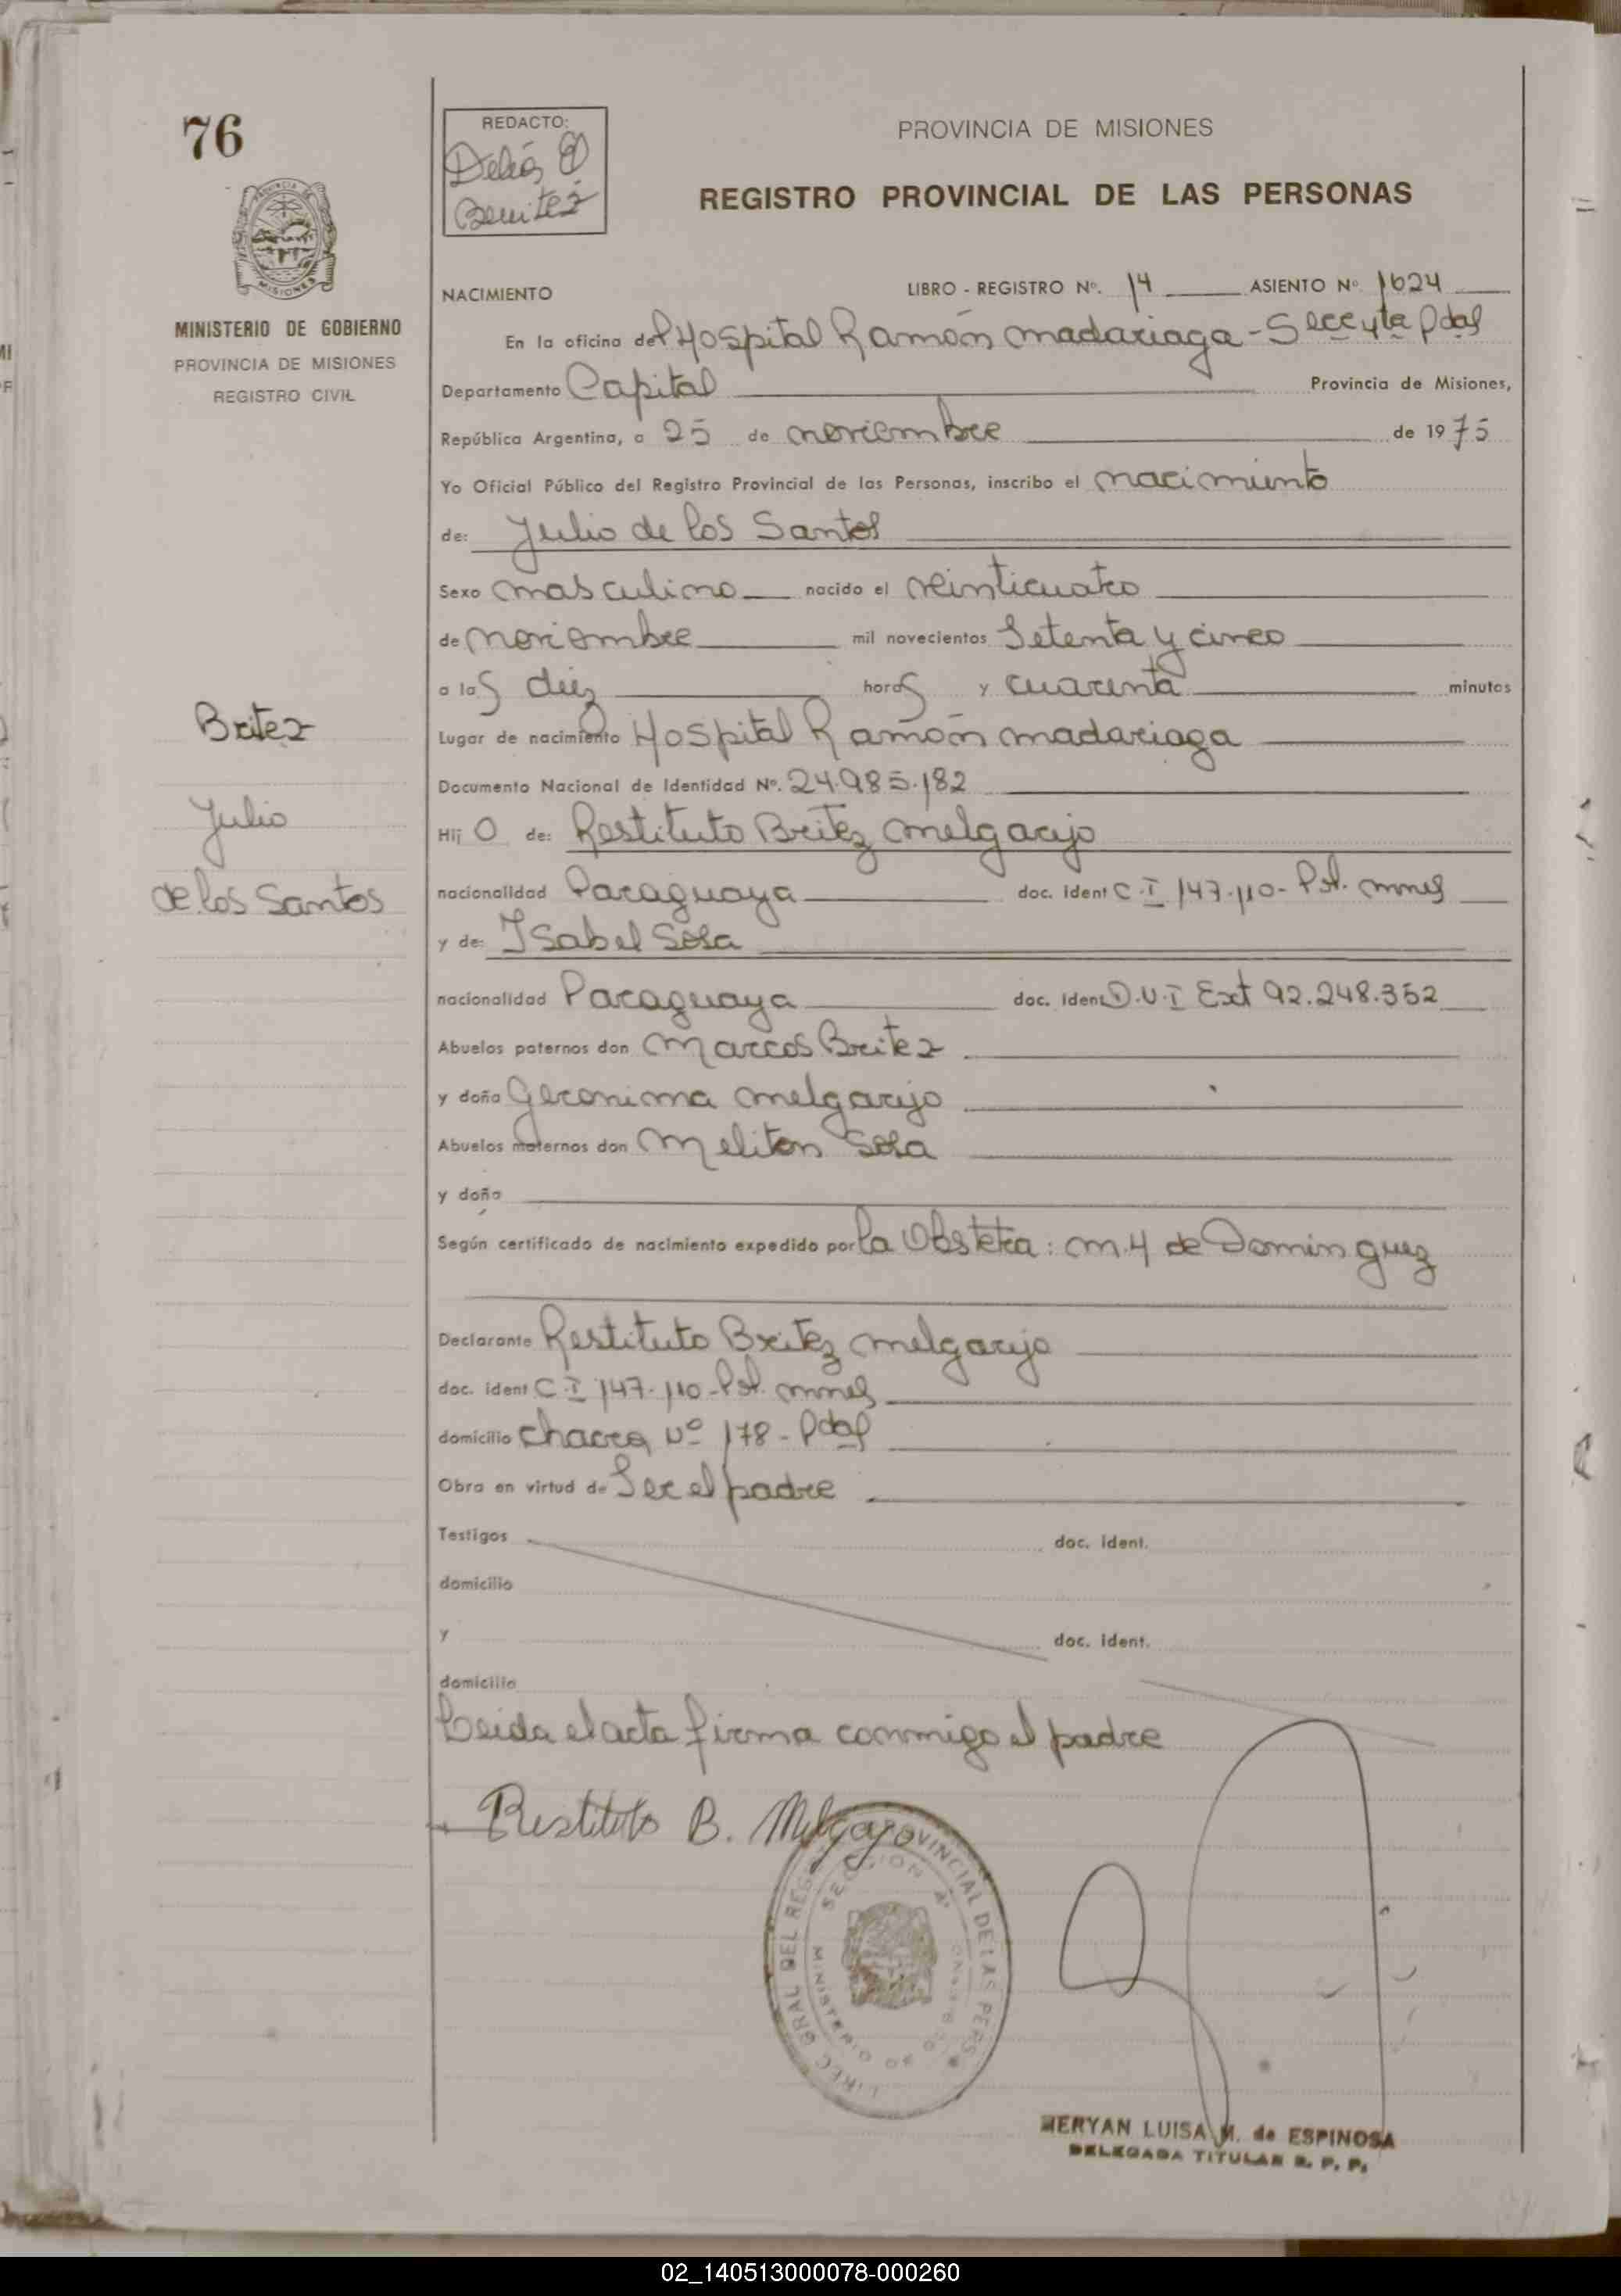 76
REDACTO:
Benitez
PROVINCIA DE MISIONES
REGISTRO PROVINCIAL DE LAS PERSONAS
MINISTERIO DE GOBIERNO
PROVINCIA DE MISIONES
REGISTRO CIVIL
NACIMIENTO LIBRO - REGISTRO Nº. 14 ASIENTO Nº 1624
En la oficina del Hospital Ramón Madariaga - Secc 4ta Pdas
Departamento Capital Provincia de Misiones,
República Argentina, a 25 de noviembre de 1975
Yo Oficial Público del Registro Provincial de las Personas, inscribo el nacimiento
de: Julio de los Santos
Sexo masculino nacido el veinticuatro
de noviembre mil novecientos Setenta y cinco
a las diez horas y cuarenta minutos
Britez
Lugar de nacimiento Hospital Ramón Madariaga
Documento Nacional de Identidad Nº. 24.985.182
Julio
Hij o de: Restituto Britez Melgarejo
de los Santos
nacionalidad Paraguaya doc. ident C.I 147.110 - Pol. Mnes
y de: Isabel Sosa
nacionalidad Paraguaya doc. ident D.U.I Ext 92.248.352
Abuelos paternos don Marcos Britez
y doña Geronima Melgarejo
Abuelos maternos don Meliton Sosa
y doña
Según certificado de nacimiento expedido por la Obstetra: M.4 de Dominguez
Declarante Restituto Britez Melgarejo
doc. ident C.I 147.110 - Pol. Mnes
domicilio Chacra Nº 178 - Pdas
Obra en virtud de Ser el padre
Testigos doc. ident.
domicilio
y doc. ident.
domicilio
Leida el acta firma conmigo el padre
Restituto B. Melgarejo
MERYAN LUISA M. de ESPINOSA
DELEGADA TITULAR R. P. P.
02_140513000078-000260